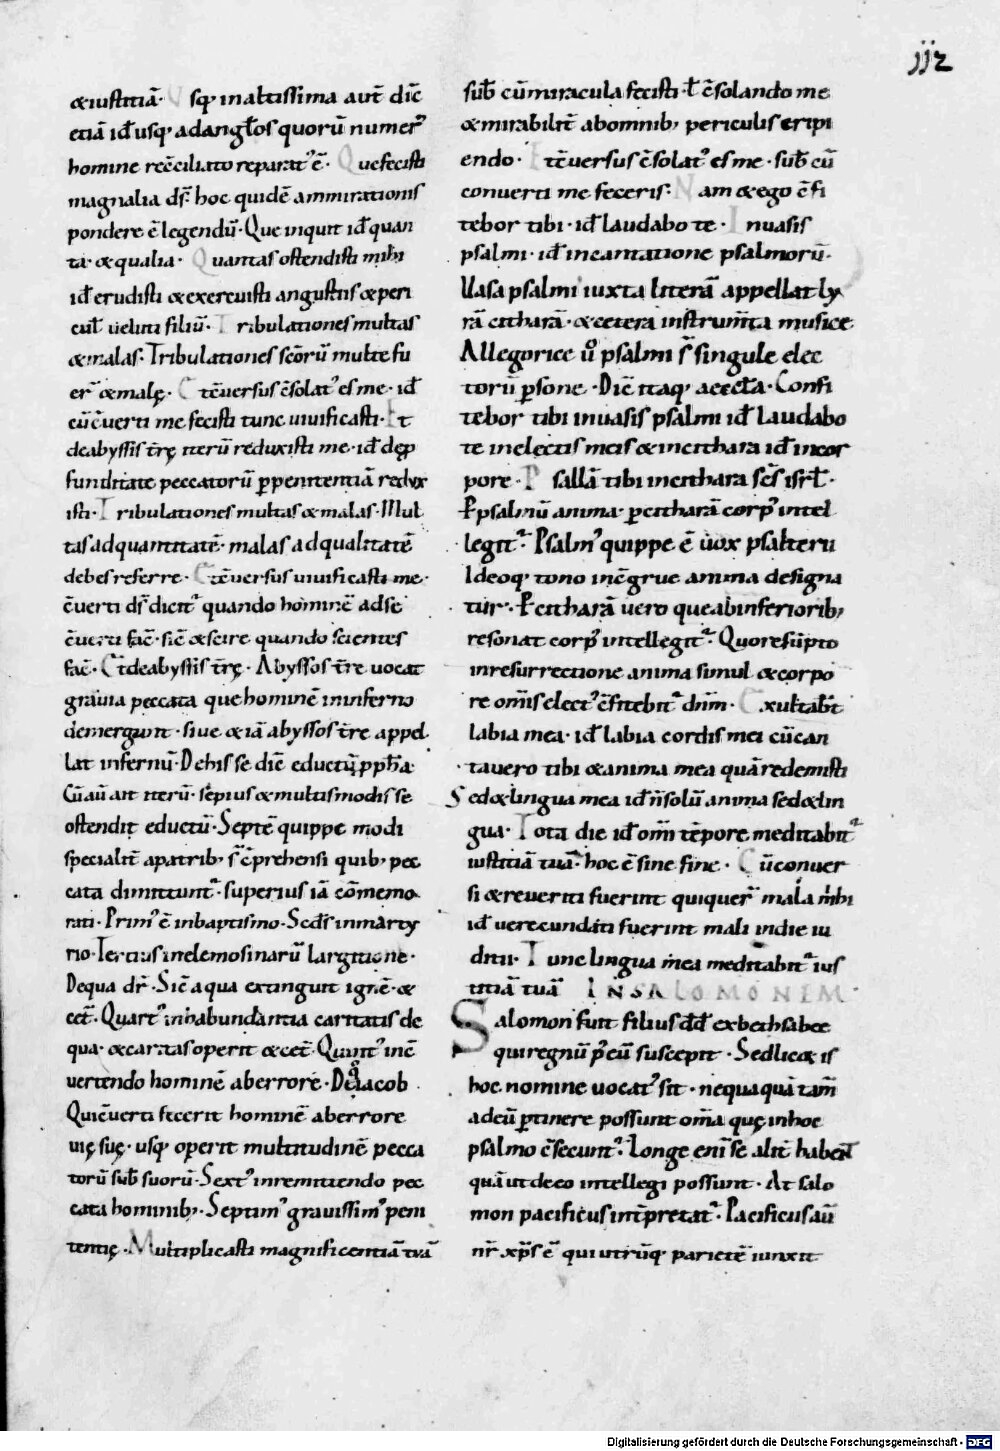 jj2
&iustitiā· Usq; in altissima aut̄ dic̄
etiā id̄ usq; ad angłos quorū numer᷒
homine recc̄iliato reparat᷒ ē· Que fecisti
magnalia ds̄· hoc quidē ammirationis
pondere ē legendū· Que inquit id̄ quan
ta· & qualia· Quantas ostendisti mihi
id̄ erudisti & exercuisti angustiis & peri
cul̄ veluti filiū· Tribulationes multas
& malas· Tribulationes sc̄orū multe fu
er̄ & malę· Et c̄versus c̄solat᷒ es me· id̄
cū c̄verti me fecisti tunc vivificasti· Et
de abyssis t̄rę iterū reduxisti me· id̄ de p̱
funditate peccatorū p̱ penitentiā redux
isti· Tribulationes multas & malas· Mul
tas ad quantitatē· malas ad qualitatē
debes referre· Et c̄versus vivificasti me·
c̄verti ds̄ dicit᷒ quando hominē ad se
c̄verti fac̄· sic̄ & scire quando scientes
fac̄· Et de abyssis t̄rę· Abyssos t̄re vocat
gravia peccata que hominē in inferno
demergunt· sive & iā abyssos t̄re appel
lat infernū· De his se dic̄ eductū p̱pħa·
Cū aū ait iterū· sepius & multismodis se
ostendit eductū· Septē quippe modi
specialit̄ a patrib; s̄t c̄prehensi quib; pec
cata dimittunt᷒· superius iā cōmemo
rati· Prim᷒ ē in baptismo· Sc̄ds in marty
rio· Tertius in elemosinarū largitione·
De qua dr̄· Sic̄ aqua extinguit ignē· &
cet̄· Quart᷒ in habundantia caritatis de
qua· & caritas operit & cet̄· Quint᷒ in c̄
vertendo hominē ab errore· De q̊ iacob
Qui c̄verti fecerit hominē ab errore
vię suę· usq; operit multitudinē pecca
torū sub̄ suorū· Sext᷒ in remittendo pec
cata hominib;· Septim᷒ gravissim᷒ peni
tentię· Multiplicasti magnificentiā tuā
sub̄ cū miracula fecisti· ł c̄solando me
& mirabilit̄ ab omnib; periculis eripi
endo· Et c̄versus c̄solat᷒ es me· sub̄ cū
converti me feceris· Nam & ego c̄fi
tebor tibi· id̄ laudabo te· In vasis
psalmi· id̄ in cantatione psalmorū·
Vasa psalmi iuxta literā appellat ly
rā citharā· & cetera instrum̄ta musice·
Allegorice v̊ psalmi s̄t singule elec
torū p̱sone· Dic̄ itaq; aeccła· Confi
tebor tibi in vasis psalmi id̄ laudabo
te in electis meis & in cithara id̄ in cor
pore· Psallā tibi in cithara sc̄s isrł·
P̱ psalmū anima· p̱ citharā corp᷒ intel
legit᷒· Psalm᷒ quippe ē vox psalterii
Ideoq; tono inc̄grue anima designa
tur· P̱ citharā vero que ab inferiorib;
resonat corp᷒ intellegit᷒· Quo resūpto
in resurrectione anima simul & corpo
re om̄is elect᷒ c̄fitebit᷒ dn̄m· Exultab̄t
labia mea· id̄ labia cordis mei cū can
tavero tibi & anima mea quā redemisti
Sed & lingua mea id̄ n̄ solū anima sed & lin
gua· Tota die id̄ om̄i tēpore meditabit᷒
iustitiā tuā· hoc ē sine fine· Cū conver
si & reveriti fuerint qui quer̄t mala m̄hi
id̄ verecundati fuerint mali in die iu
ditii· Tunc lingua mea meditabit᷒ ius
titiā tuā IN SALOMONEM·
Salomon fuit filius dd̄ ex bethsabee
qui regnū p̱ eū suscepit· Sed lic& is
hoc nomine vocat᷒ sit· nequaquā tam̄
ad eū p̱tinere possunt om̄a quę in hoc
psalmo c̄secunt᷒· Longe eni se alit̄ habent
quā ut de eo intellegi possunt· At salo
mon pacificus int̄pretat᷒· Pacificus aū
nr̄ xp̄s ē qui utrūq; parietē iunxit
Digitalisierung gefördert durch die Deutsche Forschungsgemeinschaft - DFG